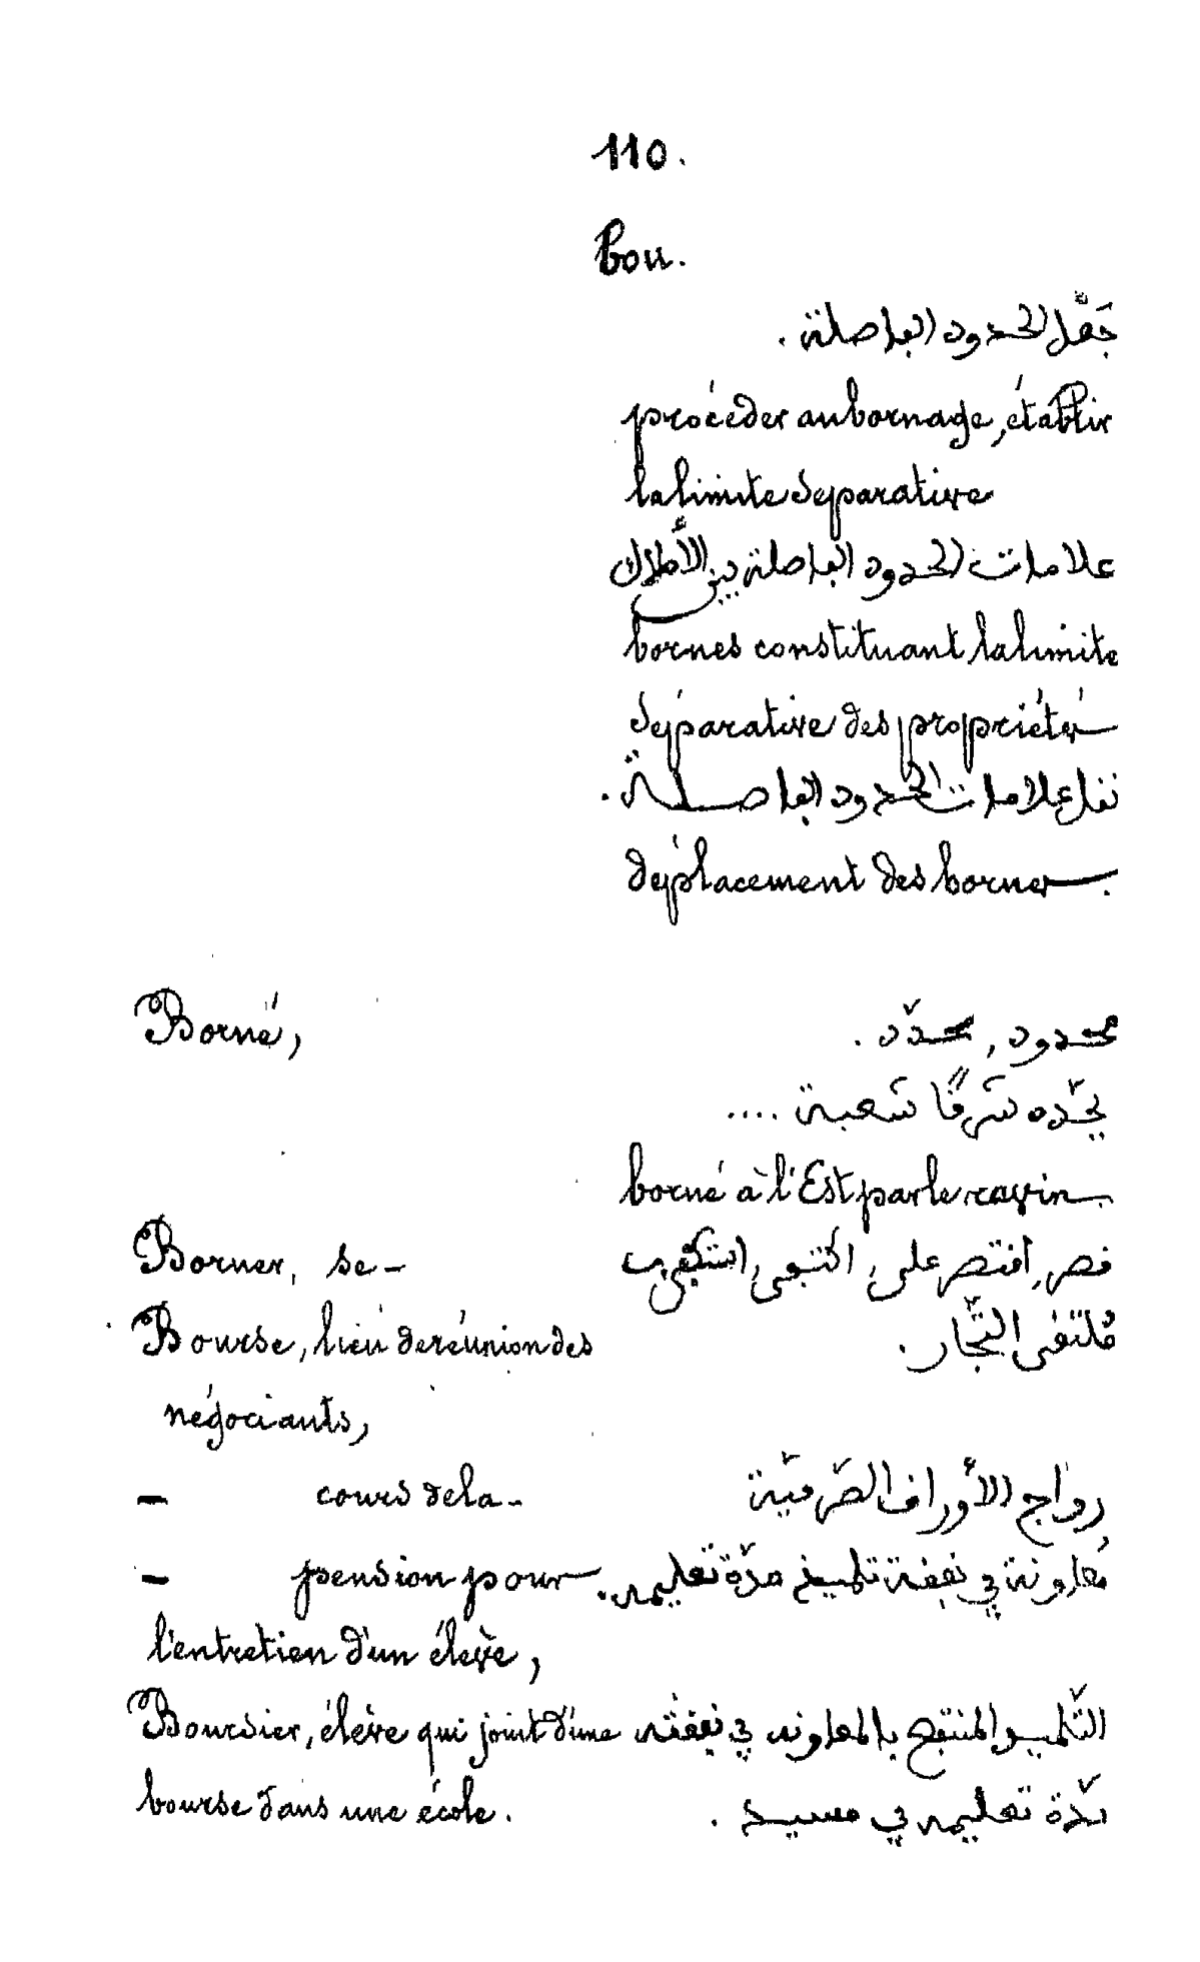 110.
Bou.
جَعْل الحدود الفاصلة.
procéder au bornage, établir
la limite séparative
علامات الحدود الفاصلة بين الأملاك
bornes constituant la limite
séparative des propriétés
نقل علامات الحدود الفاصلة.
déplacement des bornes.
Borné, محدود, محدّد.
يحدّه شرقًا شعبة ....
borné à l'Est par le ravin.
Borner, se- قصر, اقتصر على, اكتفى, استكفى ب
Bourse, lieu de réunion des مُلتقى التّجّار.
négociants,
- cours de la- رواج الأوراق الصّرفيّة
- pension pour مُعاونة في نفقة تلميذ مدّة تعليمه.
l'entretien d'un élève,
Boursier, élève qui jouit d'une التّلميذ المنتفع بالمعاونة في نفقته
bourse dans une école. مدّة تعليمه في مسيد.